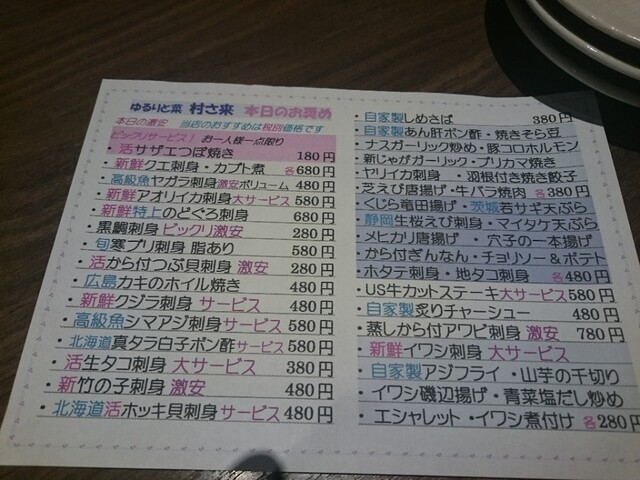 ゆるりと菜 村さ来 本日のお奨め
本日の激安 当店のおすすめは税別価格です
ビックリサービス! お一人様一点限り
・活サザエつぼ焼き 180円
・新鮮クエ刺身・カブト煮 各680円
・高級魚ヤガラ刺身激安ボリューム 480円
・新鮮アオリイカ刺身大サービス 580円
・新鮮特上のどぐろ刺身 680円
・黒鯛刺身ビックリ激安 280円
・旬寒ブリ刺身 脂あり 580円
・活から付つぶ貝刺身 激安 280円
・広島カキのホイル焼き 480円
・新鮮クジラ刺身 サービス 480円
・高級魚シマアジ刺身サービス 580円
・北海道真タラ白子ポン酢サービス 580円
・活生タコ刺身 大サービス 380円
・新竹の子刺身 激安 480円
・北海道活ホッキ貝刺身サービス 480円
・自家製しめさば 380円
・自家製あん肝ポン酢・焼きそら豆
・ナスガーリック炒め・豚コロホルモン
・新じゃがガーリック・ブリカマ焼き
・ヤリイカ刺身 ・羽根付き焼き餃子
・芝えび唐揚げ・牛バラ焼肉 各380円
・くじら竜田揚げ・茨城若サギ天ぷら
・静岡生桜えび刺身・マイタケ天ぷら
・メヒカリ唐揚げ・ 穴子の一本揚げ
・から付ぎんなん・チョリソー&ポテト
・ホタテ刺身・地タコ刺身 各480円
・US牛カットステーキ大サービス 580円
・自家製炙りチャーシュー 480円
・蒸しから付アワビ刺身 激安 780円
・新鮮イワシ刺身 大サービス
・自家製アジフライ ・山芋の千切り
・イワシ磯辺揚げ・青菜塩だし炒め
・エシャレット・イワシ煮付け 各280円